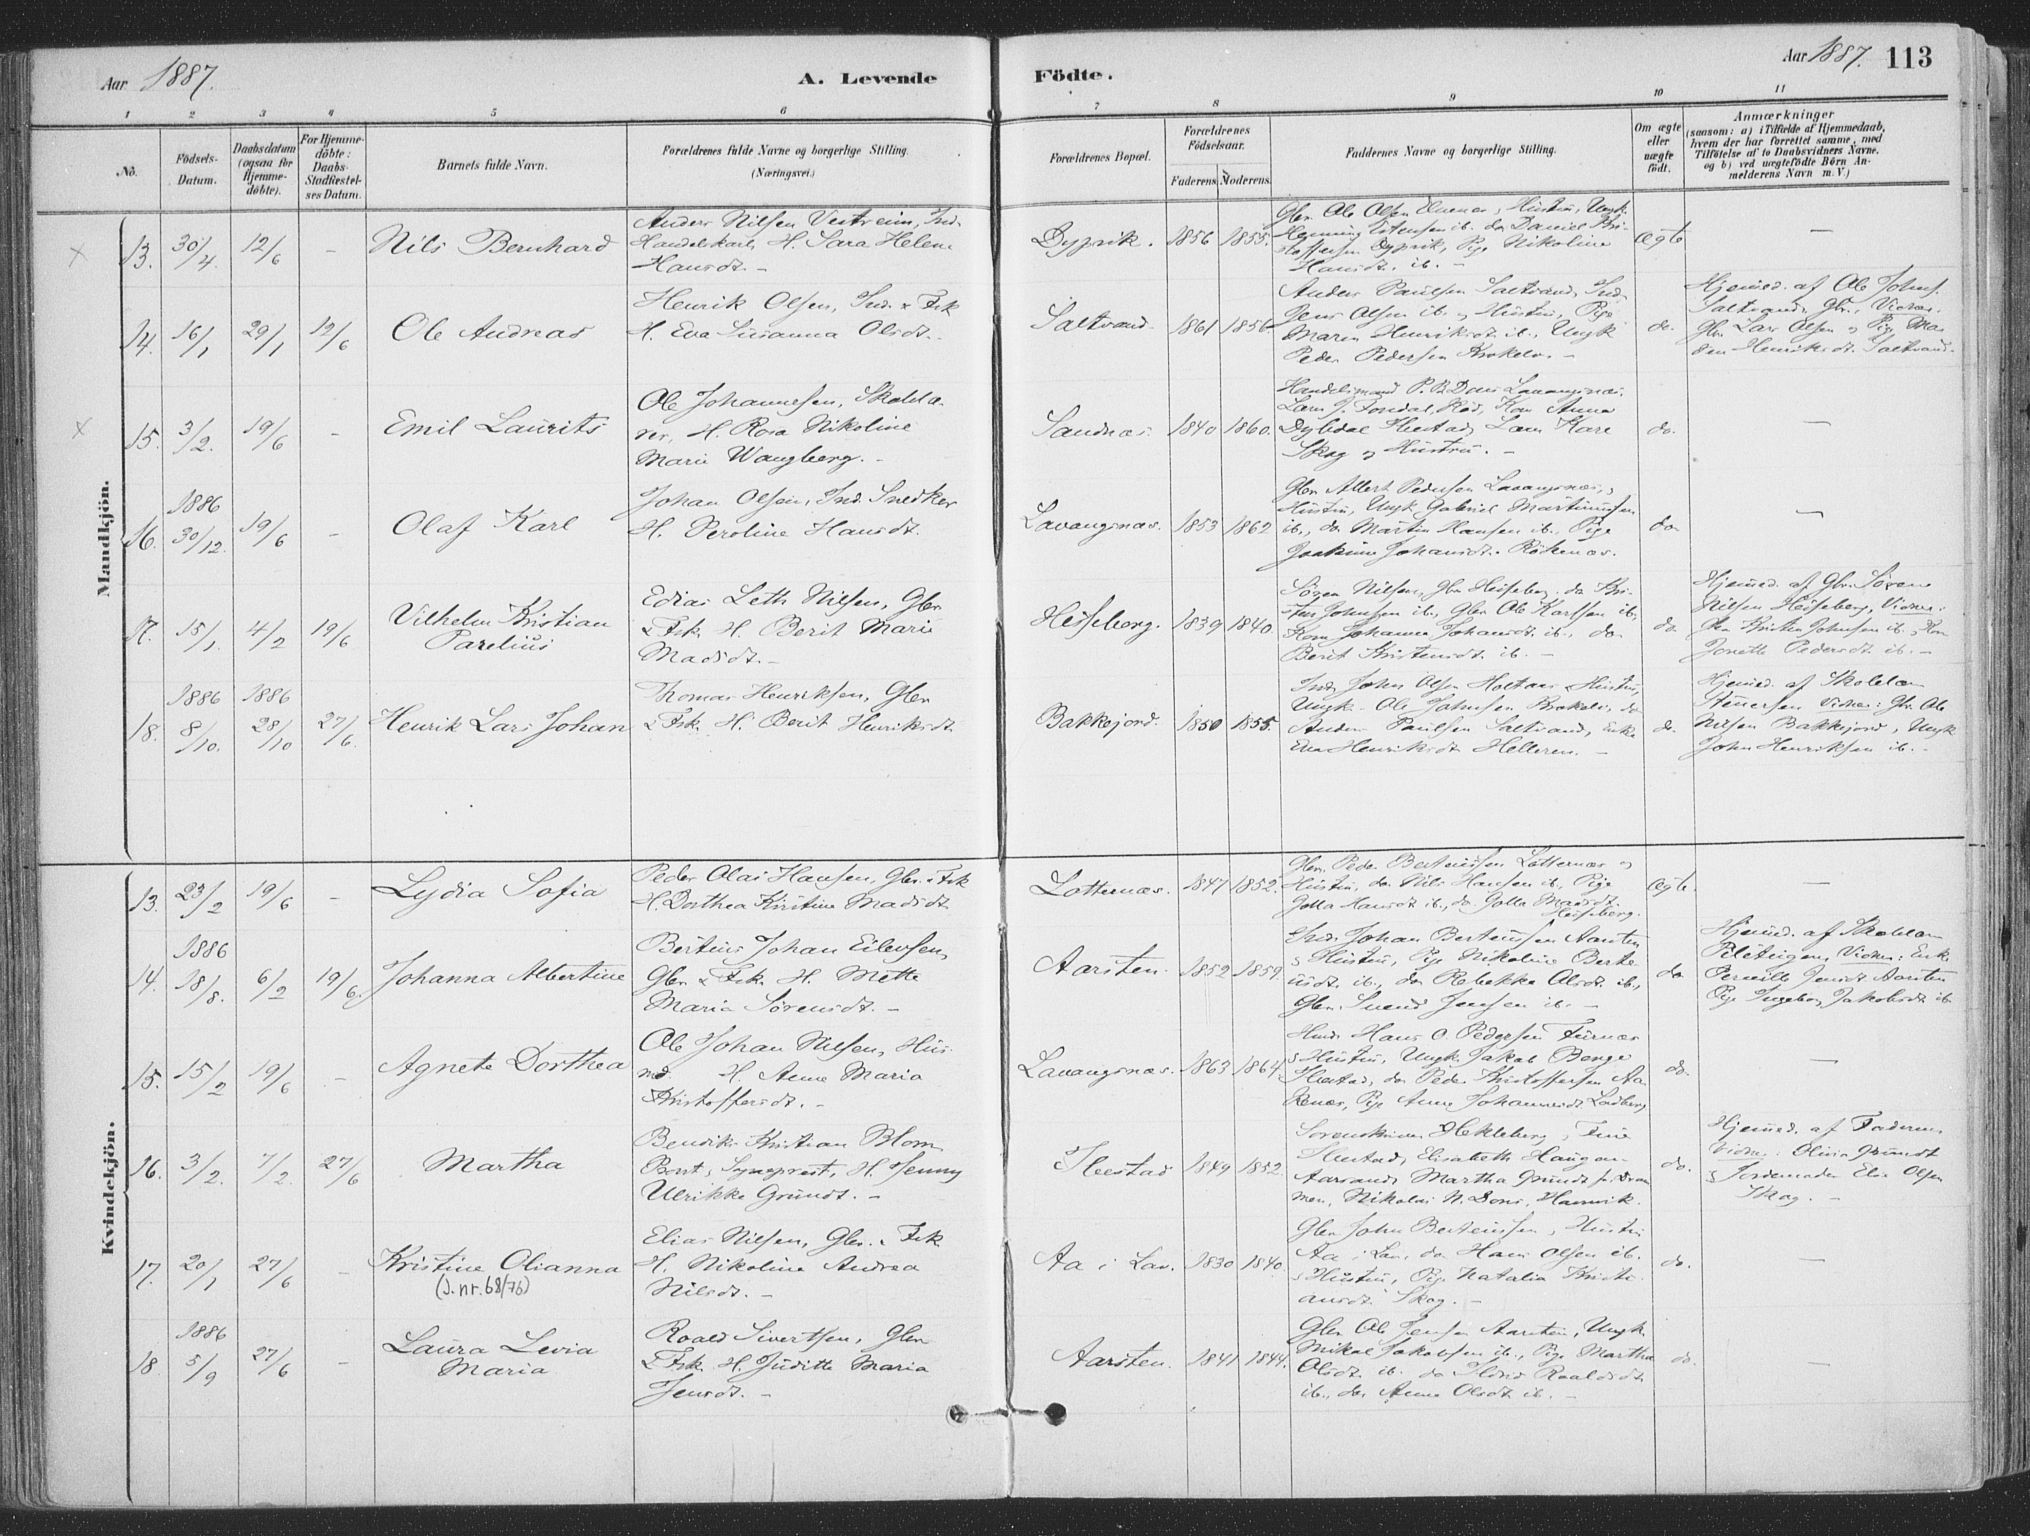 Aar 1887.
A. Levende
Födte.
Aar 1887. 113
1 2 3 4 5 6 7 8 9 10 11
No.
Födsels-
Datum.
Daabsdatum
(ogsaa for
Hjemme-
döbte).
For Hjemme-
döbte:
Daabs-
Stadfæstel-
ses Datum.
Barnets fulde Navn.
Forældrenes fulde Navne og borgerlige Stilling.
(Næringsvei.)
Forældrenes Bopæl.
Forældrenes
Födselsaar.
Faderens. Moderens.
Faddernes Navne og borgerlige Stilling.
Om ægte
eller
uægte
födt.
Anmærkninger
(saasom: a) i Tilfælde af Hjemmedaab,
hvem der har forrettet samme, med
Tilföielse af to Daabsvidners Navne,
og b) ved uægtefödte Börn An-
melderens Navn m. V.)
Mandkjön.
13. 30/4 12/6 - Nils Bernhard
Anders Nilsen Vestreim, Ind.
Handelskarl, H. Sara Helene
Hansdt. -
Dyprik. 1856 1855.
Hustru, Ungk.
ib. do Daniel Kri-
stoffersen Dyprik, Pige Nikoline
Hansdt. ib. -
Ægte -
14. 16/1 29/1 19/6 Ole Andreas
Henrik Olsen, Ind. & Fsk
H. Eva Susanna Olsdt.
Saltvand. 1861 1856
Anders Paulsen Saltvand, Ind.
Jens Olsen ib. og Hustru, Pige
Maren Henriksdt ib., Ungk
Peder Pedersen Krokelv. -
do.
Hjemmed. af Ole Johns.
Saltvand, Gbr., Vidner:
Gbr. Lars Olsen og Pige Ma-
ren Henriksdt. Saltvand.
15. 3/2. 19/6 - Emil Laurits
Ole Johannesen, Skolelæ-
rer, H. Rosa Nikoline
Marie Wangberg. -
Sandnæs. 1840 1860.
Handelsmand P. B. Dons Lavangsnæs.
Kone Anna
Dybdal Ibestad, Lars Kare
Skog og Hustru. -
do. -
16. 1886 30/12. 19/6 - Olaf Karl
Johan Olsen, Ind. Snedker
H. Peroline Hansdt.
Lavangsnæs. 1853 1862
Gbr. Albert Pedersen Lavangsnæs, &
Hustru, Ungk. Gabriel Martinussen
ib., do Martin Hansen ib. Pige
Joakime Johansdt. Rökenæs.
do. -
17. 15/1 4/2 19/6 Vilhelm Kristian
Parelius
Edias Leth Nilsen, Gbr
& Fsk. H. Berit Marie
Madsdt. -
Heiseberg. 1839 1840.
Sören Nilsen, Gbr Heiseberg, do Kri-
sten Johnsen ib., Gbr Ole Karlsen ib.
Kone Johanna Johansdt ib., do
Berit Kristensdt. ib. -
do
Hjemmed. af Gbr. Sören
Nilsen Heiseberg, Vidner:
Kristen Johnsen ib. & Kone
Jonette Pedersdt. ib. -
18. 1886 8/10. 1886 28/10 27/6. Henrik Lars Johan
Thomas Henriksen, Gbr
& Fsk. H. Berit Henriksdt
Bakkejord. 1850 1855.
Ind. John Olsen Holtaas & Hustru,
Ungk. Ole Johnsen Krokelv, do
Anders Paulsen Saltvand, Enke
Eva Henriksdt. Helleren. -
do.
Hjemmed. af Skolelær
Steuersen Vidner: Gbr. Ole
Nilsen Bakkejord, Ungk
John Henriksen ib. -
Kvindekjön.
13. 23/2 19/6 - Lydia Sofia
Peder Olai Hansen, Gbr. & Fsk
H. Dorthea Kristine Madsdt
Lotternæs. 1847 1852.
Gbr. Peder Berteussen Lotternæs og
Hustru, do Nils Hansen ib. Pige
Golla Hansdt ib., do Golla Madsdt.
Heiseberg.
Ægte. -
14. 1886 18/8. 6/2 19/6. Johanna Albertine
Berteus Johan Eilevsen,
Gbr & Fsk. H. Mette
Maria Sörensdt. -
Aarsten. 1852 1859.
Ind. Johan Berteussen Aarsten
& Hustru, Pige Nikoline Berte
usdt. ib., do Rebekka Olsdt ib.,
Gbr. Svend Jensen ib. -
do.
Hjemmed. af Skolelær
Vidner: Enke
Pernille Jensdt Aarsten
Pige Ingeborg Jakobsdt. ib
15. 15/2 19/6 - Agnete Dorthea
Ole Johan Nilsen, Hus-
md H. Anne Maria
Kristoffersdt. -
Lavangsnæs. 1863 1864.
Hmd. Hans O. Pedersen Furnæs
& Hustru, Ungk. Jakob Berge
Ibestad, do Peder Kristoffersen Aa
kenæs, Pige Anne Johannesdt.
do. -
16. 3/2. 7/2. 27/6 Martha
Bendik Kristian Blom
Bent, Sogneprest, H. Jenny
Ulrikke Grundt. -
Ibestad 1849 1852.
Sorenskriver Hekleberg, Frue
Ibestad, Elisabeth Haugan
Aarsand, Martha Grundt fr. Dram
men, Nikolai N. Dons, Hamnvik.
do.
Hjemmed. af Faderen,
Vidner: Olivia Grundt
& Jordemoder Elen Olsen
Skog. -
17. 20/1 27/6 - Kristine Olianna
(J.nr. 68/76)
Elias Nilsen, Gbr. & Fsk
H. Nikoline Andrea
Nilsdt. -
Aa i Lav. 1830 1840.
Gbr John Berteussen, Hustru
Aa i Lav., do Hans Olsen ib.
& Hustru, Pige Natalia Kristi-
ansdt Skog. -
do. -
18. 1886 5/9 27/6 - Laura Levia
Maria
Roald Sivertsen, Gbr
& Fsk. H. Juditte Maria
Jensdt. -
Aarsten. 1841 1844.
Gbr. Ole Jensen Aarsten, Ungk.
Mikal Jakobsen ib., Pige Martha
Olsdt. ib. do Roaldsdt
ib., do Anne Olsdt ib. -
do. -